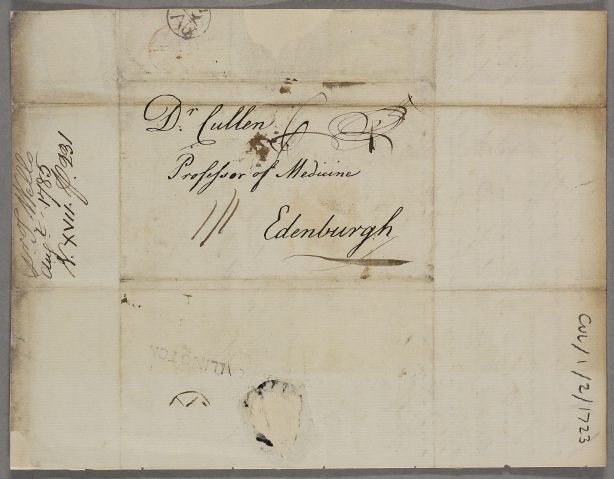 Dr. Cullen
Professor of Medicine
Edenburgh
Wells
Aug 2 1785
N. XVII. ff. 231
CUL/1/2/1723